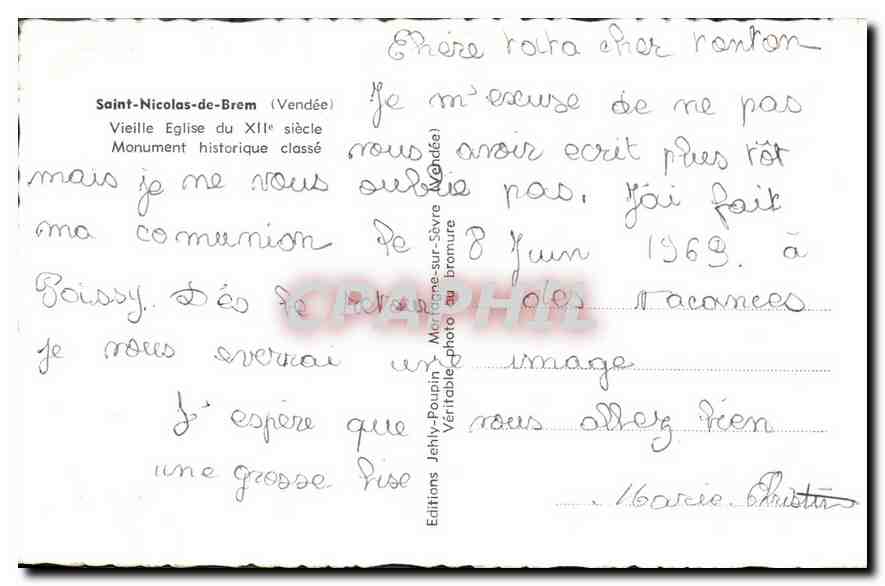 Chère tata cher tonton
Saint-Nicolas-de-Brem (Vendée)
Vieille Eglise du XIIe siècle
Monument historique classé
Je m'escuse de ne pas
vous avoir ecrit plus tôt
mais je ne vous oublie pas. J'ai fait
ma comunion le 8 Juin 1969. à
Poissy. Dés le retour des vacances
je vous everrai une image
J'espère que vous allez bien
une grosse bise
Marie-Christine
Editions Jehly-Poupin - Mortagne-sur-Sèvre (Vendée)
Véritable photo au bromure
CPAPHIL